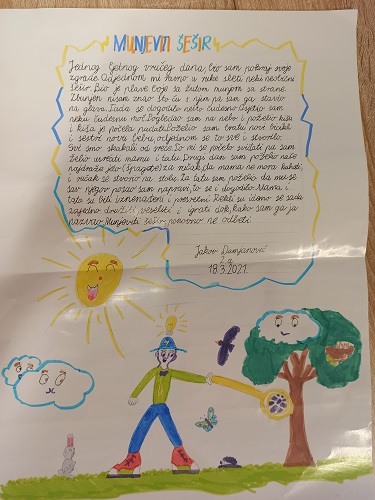 MUNJEVITI ŠEŠIR
Jednog ljetnog vrućeg dana, bio sam pokraj svoje
zgrade. Odjednom mi ravno u ruke sleti neki neobični
šešir. Bio je plave boje sa žutom munjom sa strane.
Zbunjen nisam znao što ću s njim pa sam ga stavio
na glavu. Tada se dogodilo nešto čudesno. Osjetio sam
neku čudesnu moć. Pogledao sam na nebo i poželio kišu
i kiša je počela padati. Poželio sam bratu novi bicikl
i sestri novu bebu, odjednom se to sve i stvorilo.
Svi smo skakali od sreće. To mi se počelo sviđati pa sam
želio usrećiti mamu i tatu. Drugi dan sam poželio naše
najdraže jelo (špagete) za ručak, da mama ne mora kuhati,
i ručak se stvorio na stolu. Za tatu sam poželio da mu se
sav njegov posao sam napravi, to se i dogodilo. Mama i
tata su bili iznenađeni i presretni. Rekli su idemo se sada
zajedno družiti, veseliti i igrati dok, kako sam ga ja
nazvao Munjeviti šešir ponovno ne odleti.
Jakov Damjanović
2.a
18.3.2021.